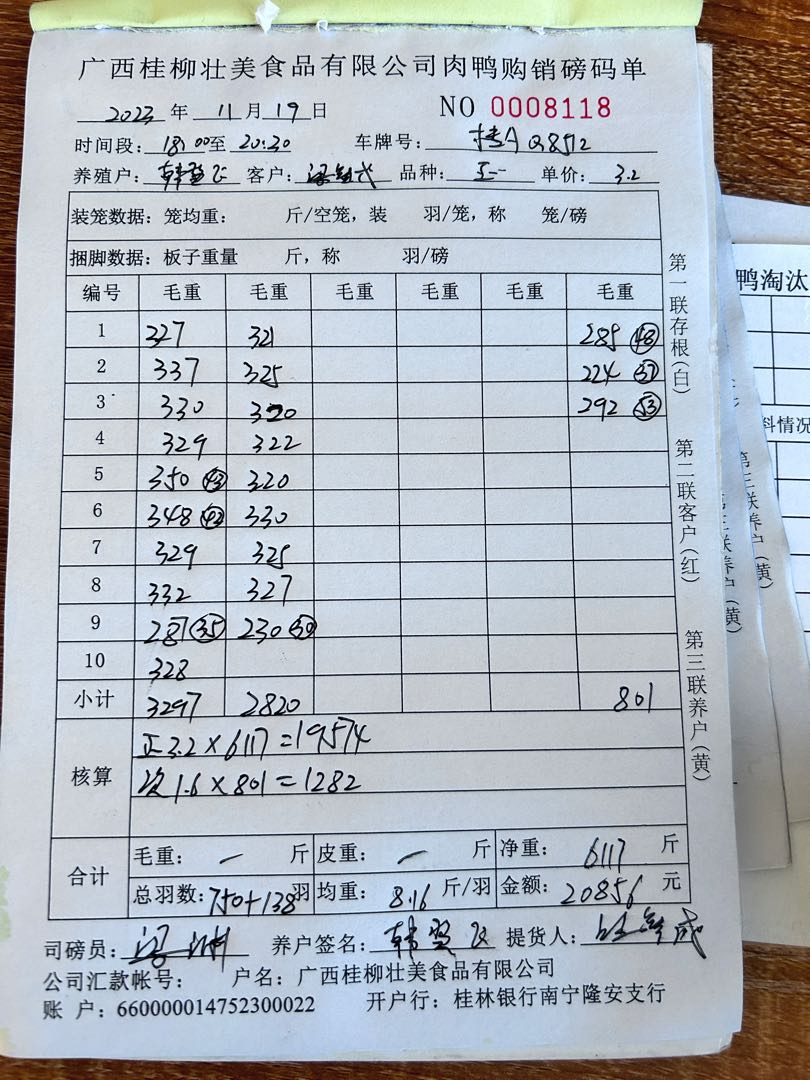 广西桂柳壮美食品有限公司肉鸭购销磅码单
2023 年 11 月 19 日 NO 0008118
时间段: 18:00 至 20:20 车牌号: 桂A Q8512
养殖户: 韩坚飞 客户: 品种: 单价: 3.2
装笼数据: 笼均重: 斤/空笼,装 羽/笼,称 笼/磅
捆脚数据: 板子重量 斤,称 羽/磅
编号 毛重 毛重 毛重 毛重 毛重 毛重
1 327 321 285 48
2 337 325 224 37
3 330 320 292 53
4 329 322
5 350 43 320
6 348 42 330
7 329 325
8 332 327
9 287 35 230 30
10 328
小计 3297 2820 801
核算 正3.2×6117=19574
次1.6×801=1282
合计 毛重: — 斤 皮重: — 斤 净重: 6117 斤
总羽数: 750+138 羽 均重: 8.16 斤/羽 金额: 20856 元
司磅员: 养户签名: 韩坚飞 提货人:
公司汇款帐号: 户名: 广西桂柳壮美食品有限公司
账 户: 660000014752300022 开户行: 桂林银行南宁隆安支行
第一联存根(白)
第二联客户(红)
第三联养户(黄)
鸭淘汰
料情况
第三联养户(黄)
(黄)